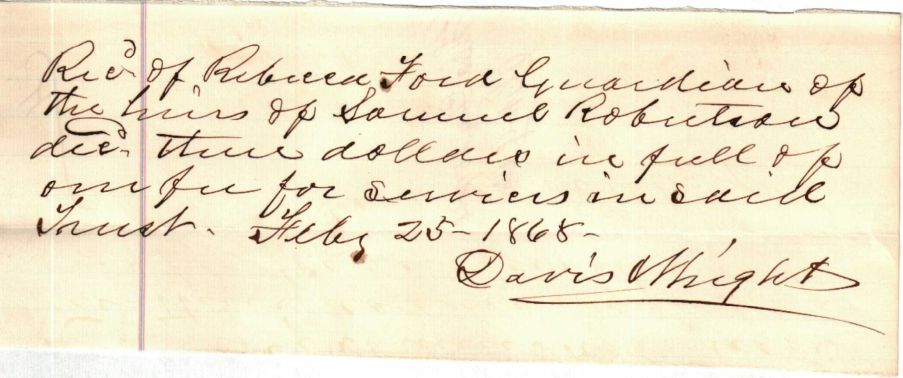 Recd. of Rebecca Ford Guardian of
the heirs of Samuel Robertson
decd. three dollars in full of
our fee for services in said
Trust. Feby 25 - 1868 -
Davis & Wright